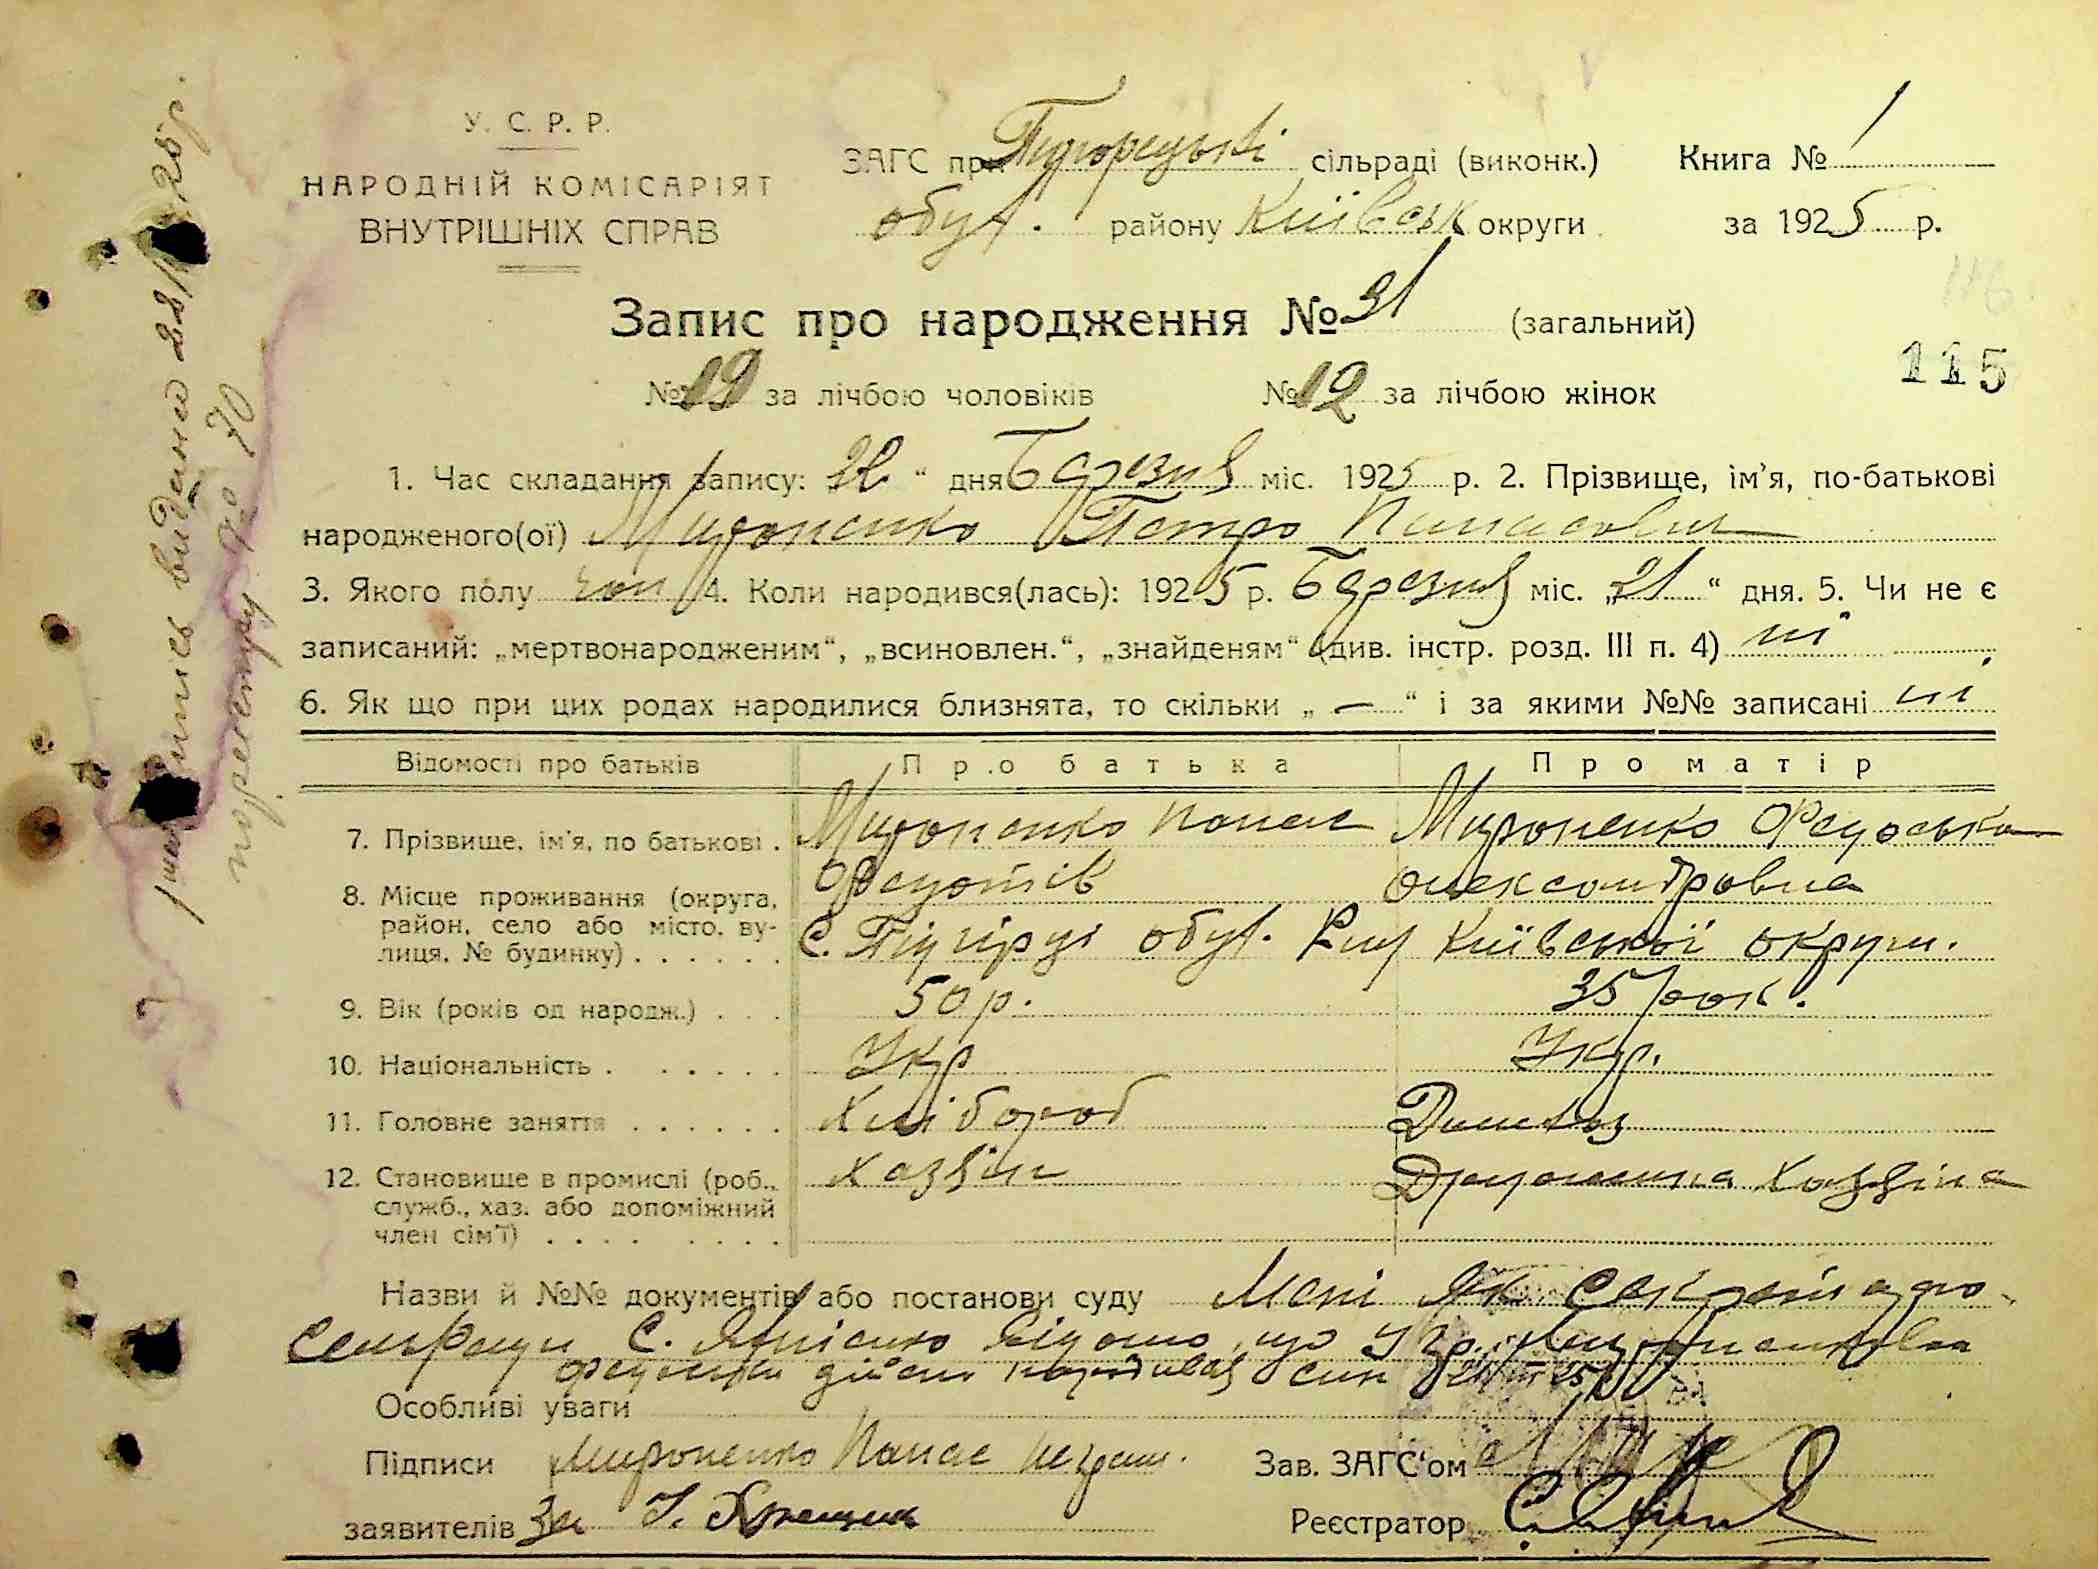 У. С. Р. Р.
НАРОДНІЙ КОМІСАРІЯТ
ВНУТРІШНІХ СПРАВ
ЗАГС при Підгорецькі сільраді (виконк.) Книга № 1
обух. району Київськ округи за 1925 р.
Запис про народження № 31 (загальний)
№ 19 за лічбою чоловіків № 12 за лічбою жінок
115
116
1. Час складання запису: 22 “ дня Березня міс. 1925 р. 2. Прізвище, ім’я, по-батькові
народженого(ої) Мироненко Петро Панасович
3. Якого полу чол 4. Коли народився(лась): 1925 р. Березня міс. „21“ дня. 5. Чи не є
записаний: „мертвонародженим“, „всиновлен.“, „знайденям“ (див. інстр. розд. III п. 4) ні
6. Як що при цих родах народилися близнята, то скільки „ — “ і за якими №№ записані ні
Відомості про батьків Про батька Про матір
7. Прізвище, ім’я, по батькові . Мироненко Панас Мироненко Федоська
Федотів Олександровна
8. Місце проживання (округа, район, село або місто, вулиця, № будинку) . . . . . . С. Підгірці обух. Київської округи.
9. Вік (років од народж.) . . . 50 р. 35 рок.
10. Національність . . . . . . Укр Укр.
11. Головне заняття . . . . . . Хлібороб Домхоз
12. Становище в промислі (роб., служб., хаз. або допоміжний член сім’ї) . . . . . . . . Хазяїн Дружина Хазяїна
Назви й №№ документів або постанови суду Мені як секретарю
Сельради С. відомо що у гр.
Федоськи дійсно народився син 21/III 25
Особливі уваги
Підписи Мироненко Панас
заявителів За
Зав. ЗАГС‘ом
Реєстратор
видана 22/ 25р.
по реєстру № 70